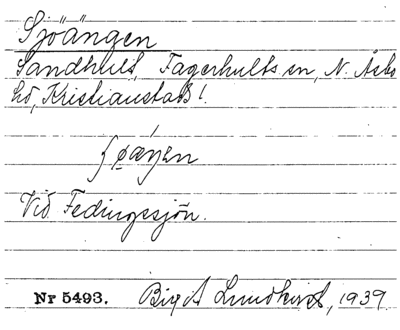 Sjöängen
Sandhult, Fagerhults sn, N. Åsbo
hd, Kristianstads l.
ʃøæŋen
Vid Fedingssjön.
Nr 5493. Birgit Lundkvist, 1939